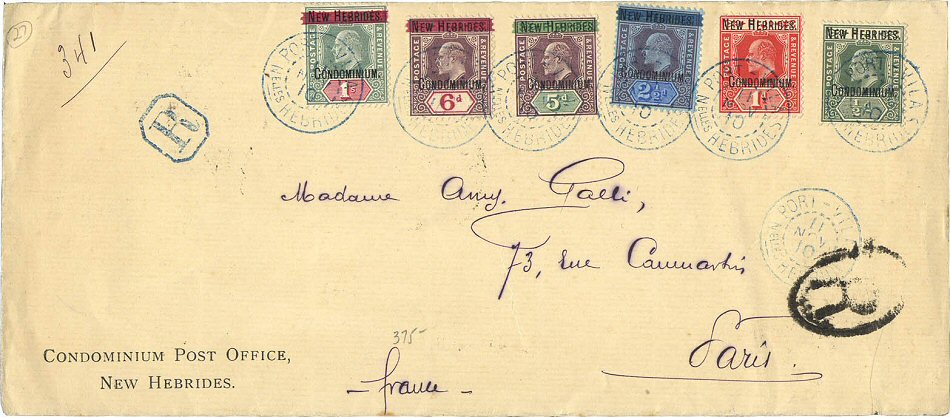 27
341
R
NEW HEBRIDES.
POSTAGE & REVENUE
CONDOMINIUM.
1s
NEW HEBRIDES.
POSTAGE & REVENUE
CONDOMINIUM.
6d
NEW HEBRIDES.
POSTAGE & REVENUE
CONDOMINIUM.
5d
NEW HEBRIDES.
POSTAGE & REVENUE
CONDOMINIUM.
2½d
NEW HEBRIDES.
POSTAGE & REVENUE
CONDOMINIUM.
1d
NEW HEBRIDES.
POSTAGE & REVENUE
CONDOMINIUM.
½d
Madame Amy. Galli,
73, rue Caumartin
Paris.
france
PORT-VILA
11
NO
10
HEBRIDES
R
375-
CONDOMINIUM POST OFFICE,
NEW HEBRIDES.